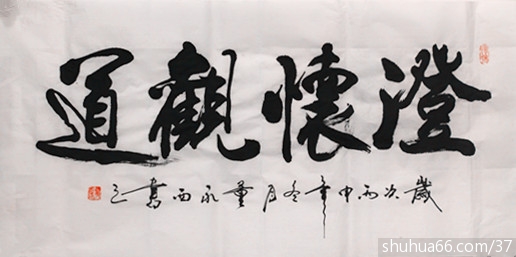 澄懷觀道
歲次丙申年冬月董永西書之
shuhua66.com/37